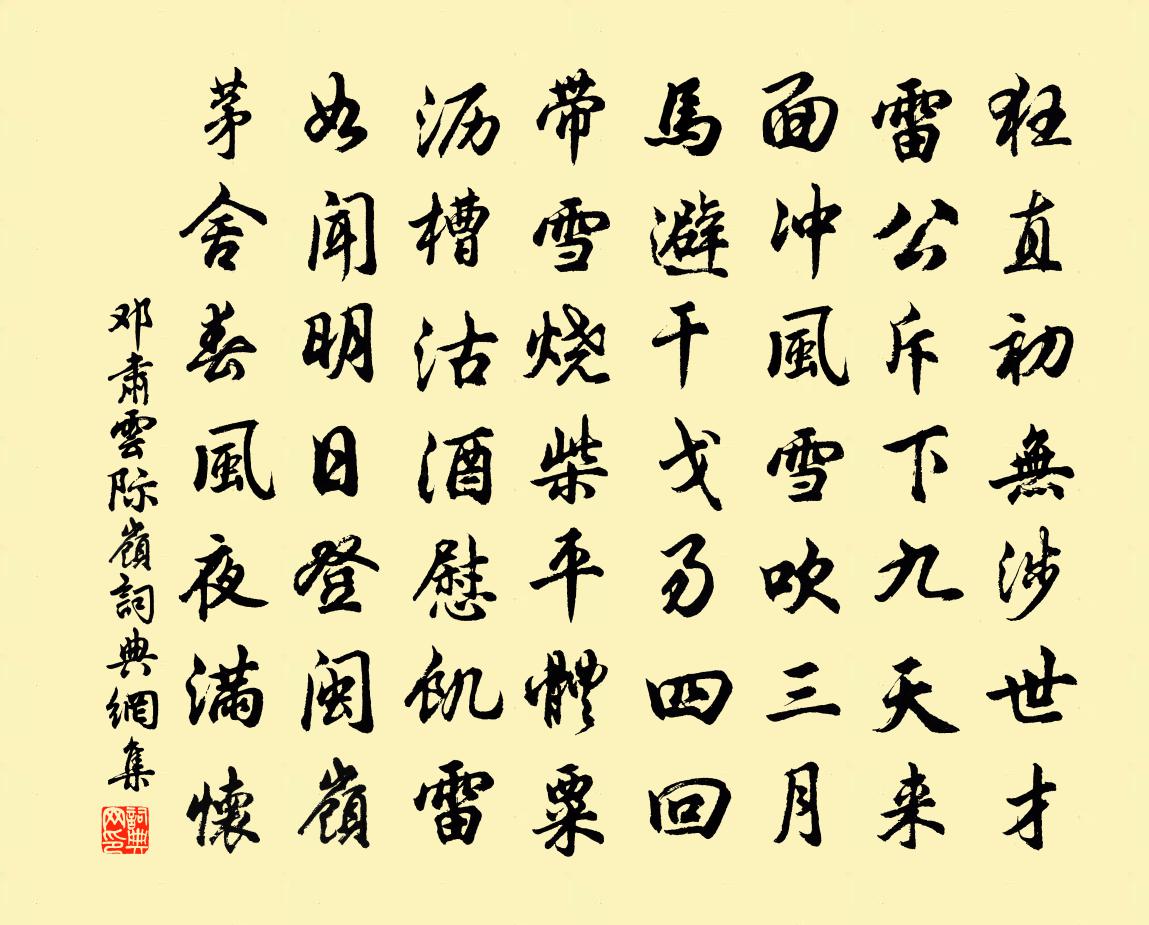 狂直初無涉世才
雷公斥下九天来
面冲風雪吹三月
馬避干戈易四回
带雪烧柴平體粟
沥槽沽酒慰飢雷
如闻明日登闽嶺
茅舍春風夜满懷
邓肅雲际嶺詞典網集
詞典网印